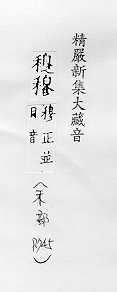 精嚴新集大藏音
穆正並
日音
（禾部
R945）